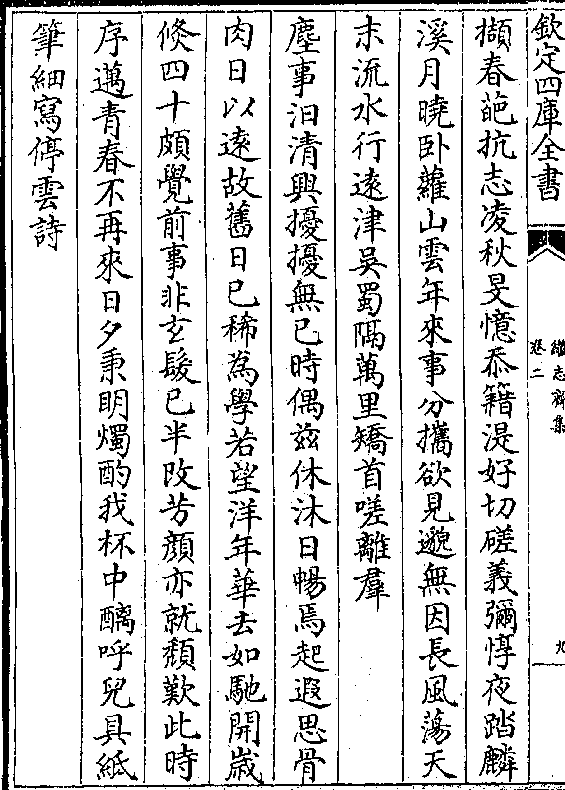 欽定四庫全書
繼志齋集
卷二
九
擷春葩抗志凌秋旻憶忝籍湜好切磋義彌惇夜踏麟
溪月曉卧蘿山雲年來事分攜欲見邈無因長風蕩天
末流水行遠津吳蜀隔萬里矯首嗟離羣
塵事汩清興擾擾無已時偶兹休沐日暢焉起遐思骨
肉日以遠故舊日已稀為學若望洋年華去如馳開嵗
倐四十頗覺前事非玄髮已半改芳顔亦就頽歎此時
序邁青春不再來日夕秉明燭酌我杯中醨呼兒具紙
筆細寫停雲詩